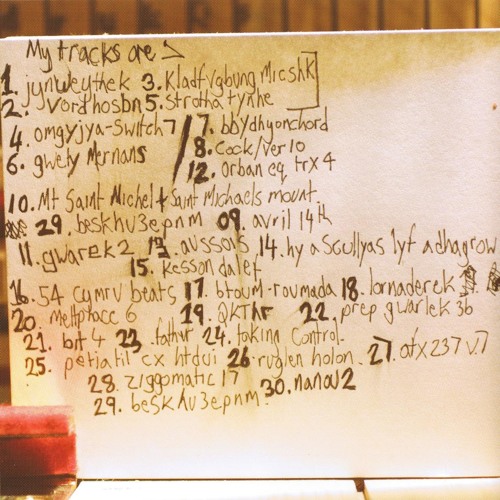 My tracks are >
1. jynweythek 3. Kladfvgbung Micshk
2. Vordhosbn 5. Strotha tynhe
4. omgyjya-Switch 7 / 7. bbydhyonchord
6. gwety Mernans 8. Cock/ver 10
12. Orban eq trx 4
10. Mt Saint Michel + Saint Michaels mount.
29. beskhu3epnm 09. avril 14th
11. gwarek 2 13. aussois 14. hy a Scullyas lyf adhagrow
15. Kesson dalef
16. 54 cymru beats 17. btoum-roumada 18. lornaderek
20. meltphace 6 19. QKThr 22. prep gwarlek 3b
21. bit 4 23. fathur 24. taking Control.
25. petiatil cx htdui 26. ruglen holon. 27. afx 237 v.7
28. Ziggomatic 17 30. nanou 2
29. beskhu3epnm.